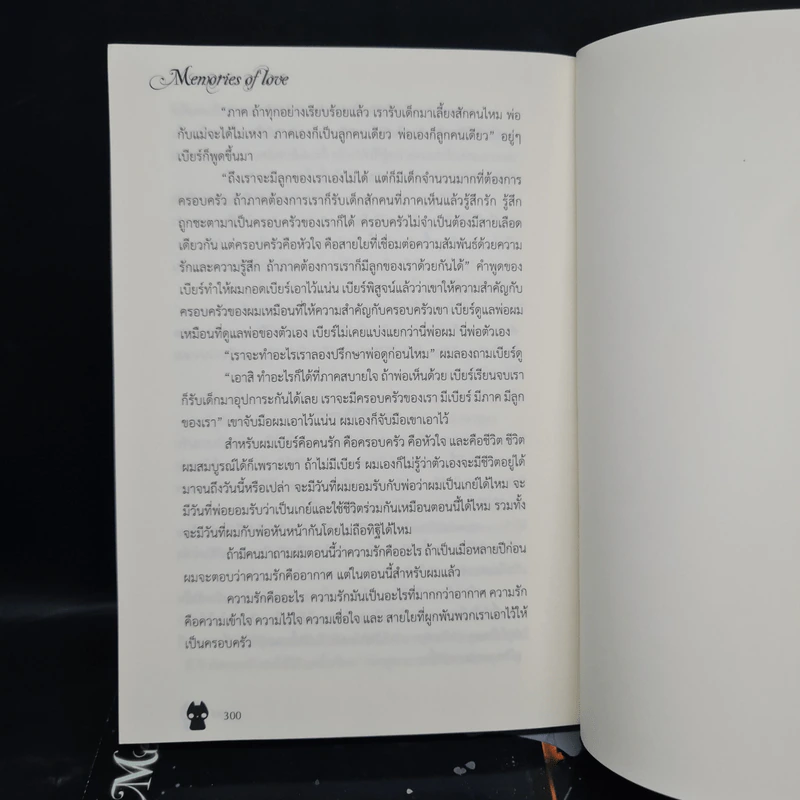 Memories of love
“ภาค ถ้าทุกอย่างเรียบร้อยแล้ว เรารับเด็กมาเลี้ยงสักคนไหม พ่อ
กับแม่จะได้ไม่เหงา ภาคเองก็เป็นลูกคนเดียว พ่อเองก็ลูกคนเดียว” อยู่ๆ
เบียร์ก็พูดขึ้นมา
“ถึงเราจะมีลูกของเราเองไม่ได้ แต่ก็มีเด็กจำนวนมากที่ต้องการ
ครอบครัว ถ้าภาคต้องการเราก็รับเด็กสักคนที่ภาคเห็นแล้วรู้สึกรัก รู้สึก
ถูกชะตามาเป็นครอบครัวของเราก็ได้ ครอบครัวไม่จำเป็นต้องมีสายเลือด
เดียวกัน แต่ครอบครัวคือหัวใจ คือสายใยที่เชื่อมต่อความสัมพันธ์ด้วยความ
รักและความรู้สึก ถ้าภาคต้องการเราก็มีลูกของเราด้วยกันได้” คำพูดของ
เบียร์ทำให้ผมกอดเบียร์เอาไว้แน่น เบียร์พิสูจน์แล้วว่าเขาให้ความสำคัญกับ
ครอบครัวของผมเหมือนที่ให้ความสำคัญกับครอบครัวเขา เบียร์ดูแลพ่อผม
เหมือนที่ดูแลพ่อของตัวเอง เบียร์ไม่เคยแบ่งแยกว่านี่พ่อผม นี่พ่อตัวเอง
“เราจะทำอะไรเราลองปรึกษาพ่อดูก่อนไหม” ผมลองถามเบียร์ดู
“เอาสิ ทำอะไรก็ได้ที่ภาคสบายใจ ถ้าพ่อเห็นด้วย เบียร์เรียนจบเรา
ก็รับเด็กมาอุปการะกันได้เลย เราจะมีครอบครัวของเรา มีเบียร์ มีภาค มีลูก
ของเรา” เขาจับมือผมเอาไว้แน่น ผมเองก็จับมือเขาเอาไว้
สำหรับผมเบียร์คือคนรัก คือครอบครัว คือหัวใจ และคือชีวิต ชีวิต
ผมสมบูรณ์ได้ก็เพราะเขา ถ้าไม่มีเบียร์ ผมเองก็ไม่รู้ว่าตัวเองจะมีชีวิตอยู่ได้
มาจนถึงวันนี้หรือเปล่า จะมีวันที่ผมยอมรับกับพ่อว่าผมเป็นเกย์ได้ไหม จะ
มีวันที่พ่อยอมรับว่าเป็นเกย์และใช้ชีวิตร่วมกันเหมือนตอนนี้ได้ไหม รวมทั้ง
จะมีวันที่ผมกับพ่อหันหน้ากันโดยไม่ถือทิฐิได้ไหม
ถ้ามีคนมาถามผมตอนนี้ว่าความรักคืออะไร ถ้าเป็นเมื่อหลายปีก่อน
ผมจะตอบว่าความรักคืออากาศ แต่ในตอนนี้สำหรับผมแล้ว
ความรักคืออะไร ความรักมันเป็นอะไรที่มากกว่าอากาศ ความรัก
คือความเข้าใจ ความไว้ใจ ความเชื่อใจ และ สายใยที่ผูกพันพวกเราเอาไว้ให้
เป็นครอบครัว
300
M